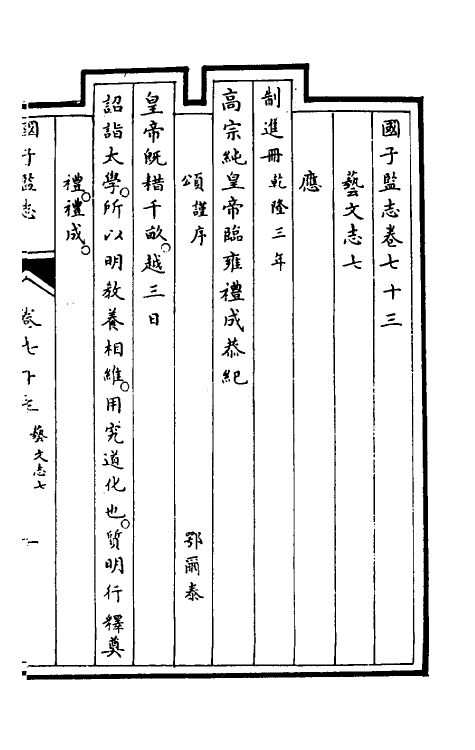 國子監志卷七十三
藝文志七
應
制進冊乾隆三年
高宗純皇帝臨雍禮成恭紀
頌謹序 鄂爾泰
皇帝旣耤千畝。越三日
詔詣太學。所以明教養相維。用究道化也。質明行釋奠
禮。禮成。
國子監志 卷七十三 藝文志七 一